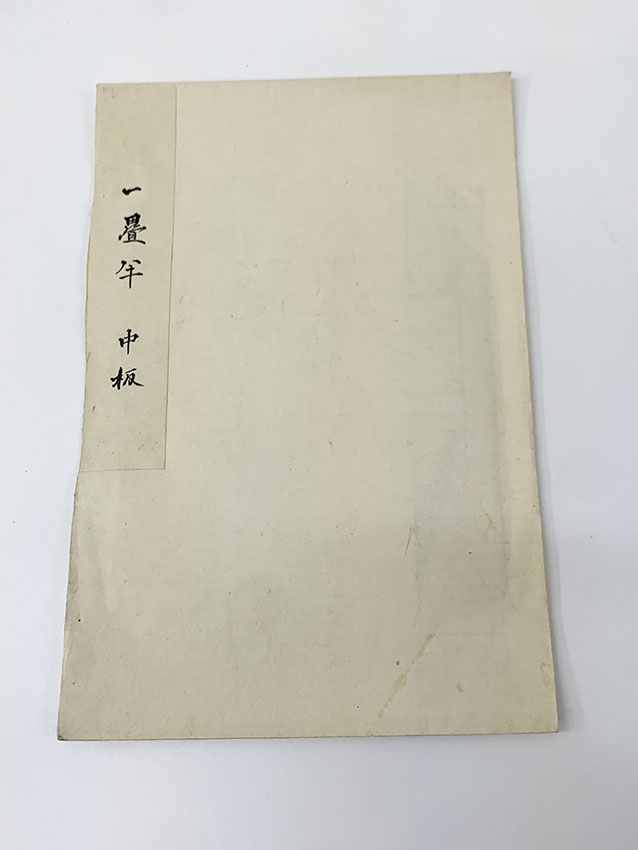 一畳半 中板